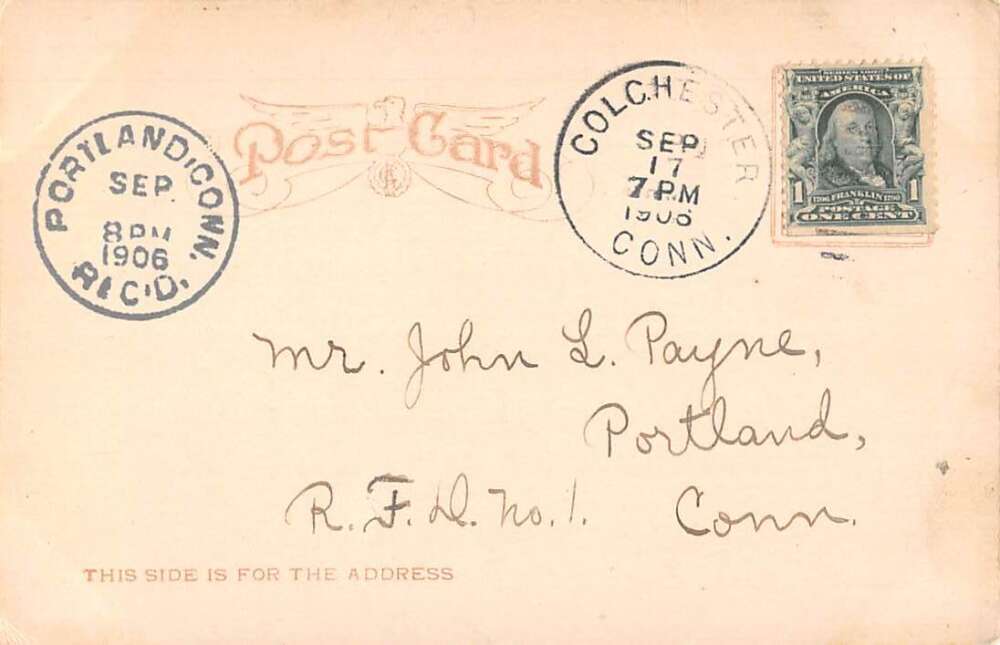 PORTLAND, CONN.
SEP
8 PM
1906
REC'D.
Post Card
COLCHESTER
SEP
17
7 PM
1906
CONN.
SERIES 1902
UNITED STATES OF
AMERICA
1 1
1706 FRANKLIN 1790
POSTAGE
ONE CENT
Mr. John L. Payne,
Portland,
R. F. D. No. 1. Conn.
THIS SIDE IS FOR THE ADDRESS